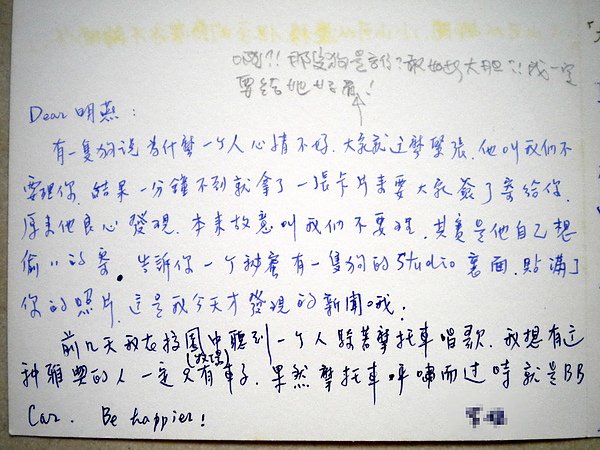 啊?! 那隻狗是誰? 敢如此大胆?! 我一定
要給他好看!
Dear 明燕:
有一隻狗说為什麼一个人心情不好.大家就这麼緊張.他叫我们不
要理你.結果一分鐘不到就拿了一張卡片来要大家簽了寄給你.
原来他良心發現.本来故意叫我们不要理.其實是他自己想
偷偷的寄.告訴你一个秘蜜有一隻狗的Studio裏面.貼滿了
你的照片.这是我今天才發現的新聞哦!
前几天我在校園中聽到一个人騎著摩托車唱歌.我想有这
种雅興的人一定只有車子.果然摩托車呼嘯而过時就是BB
Car. Be happier!